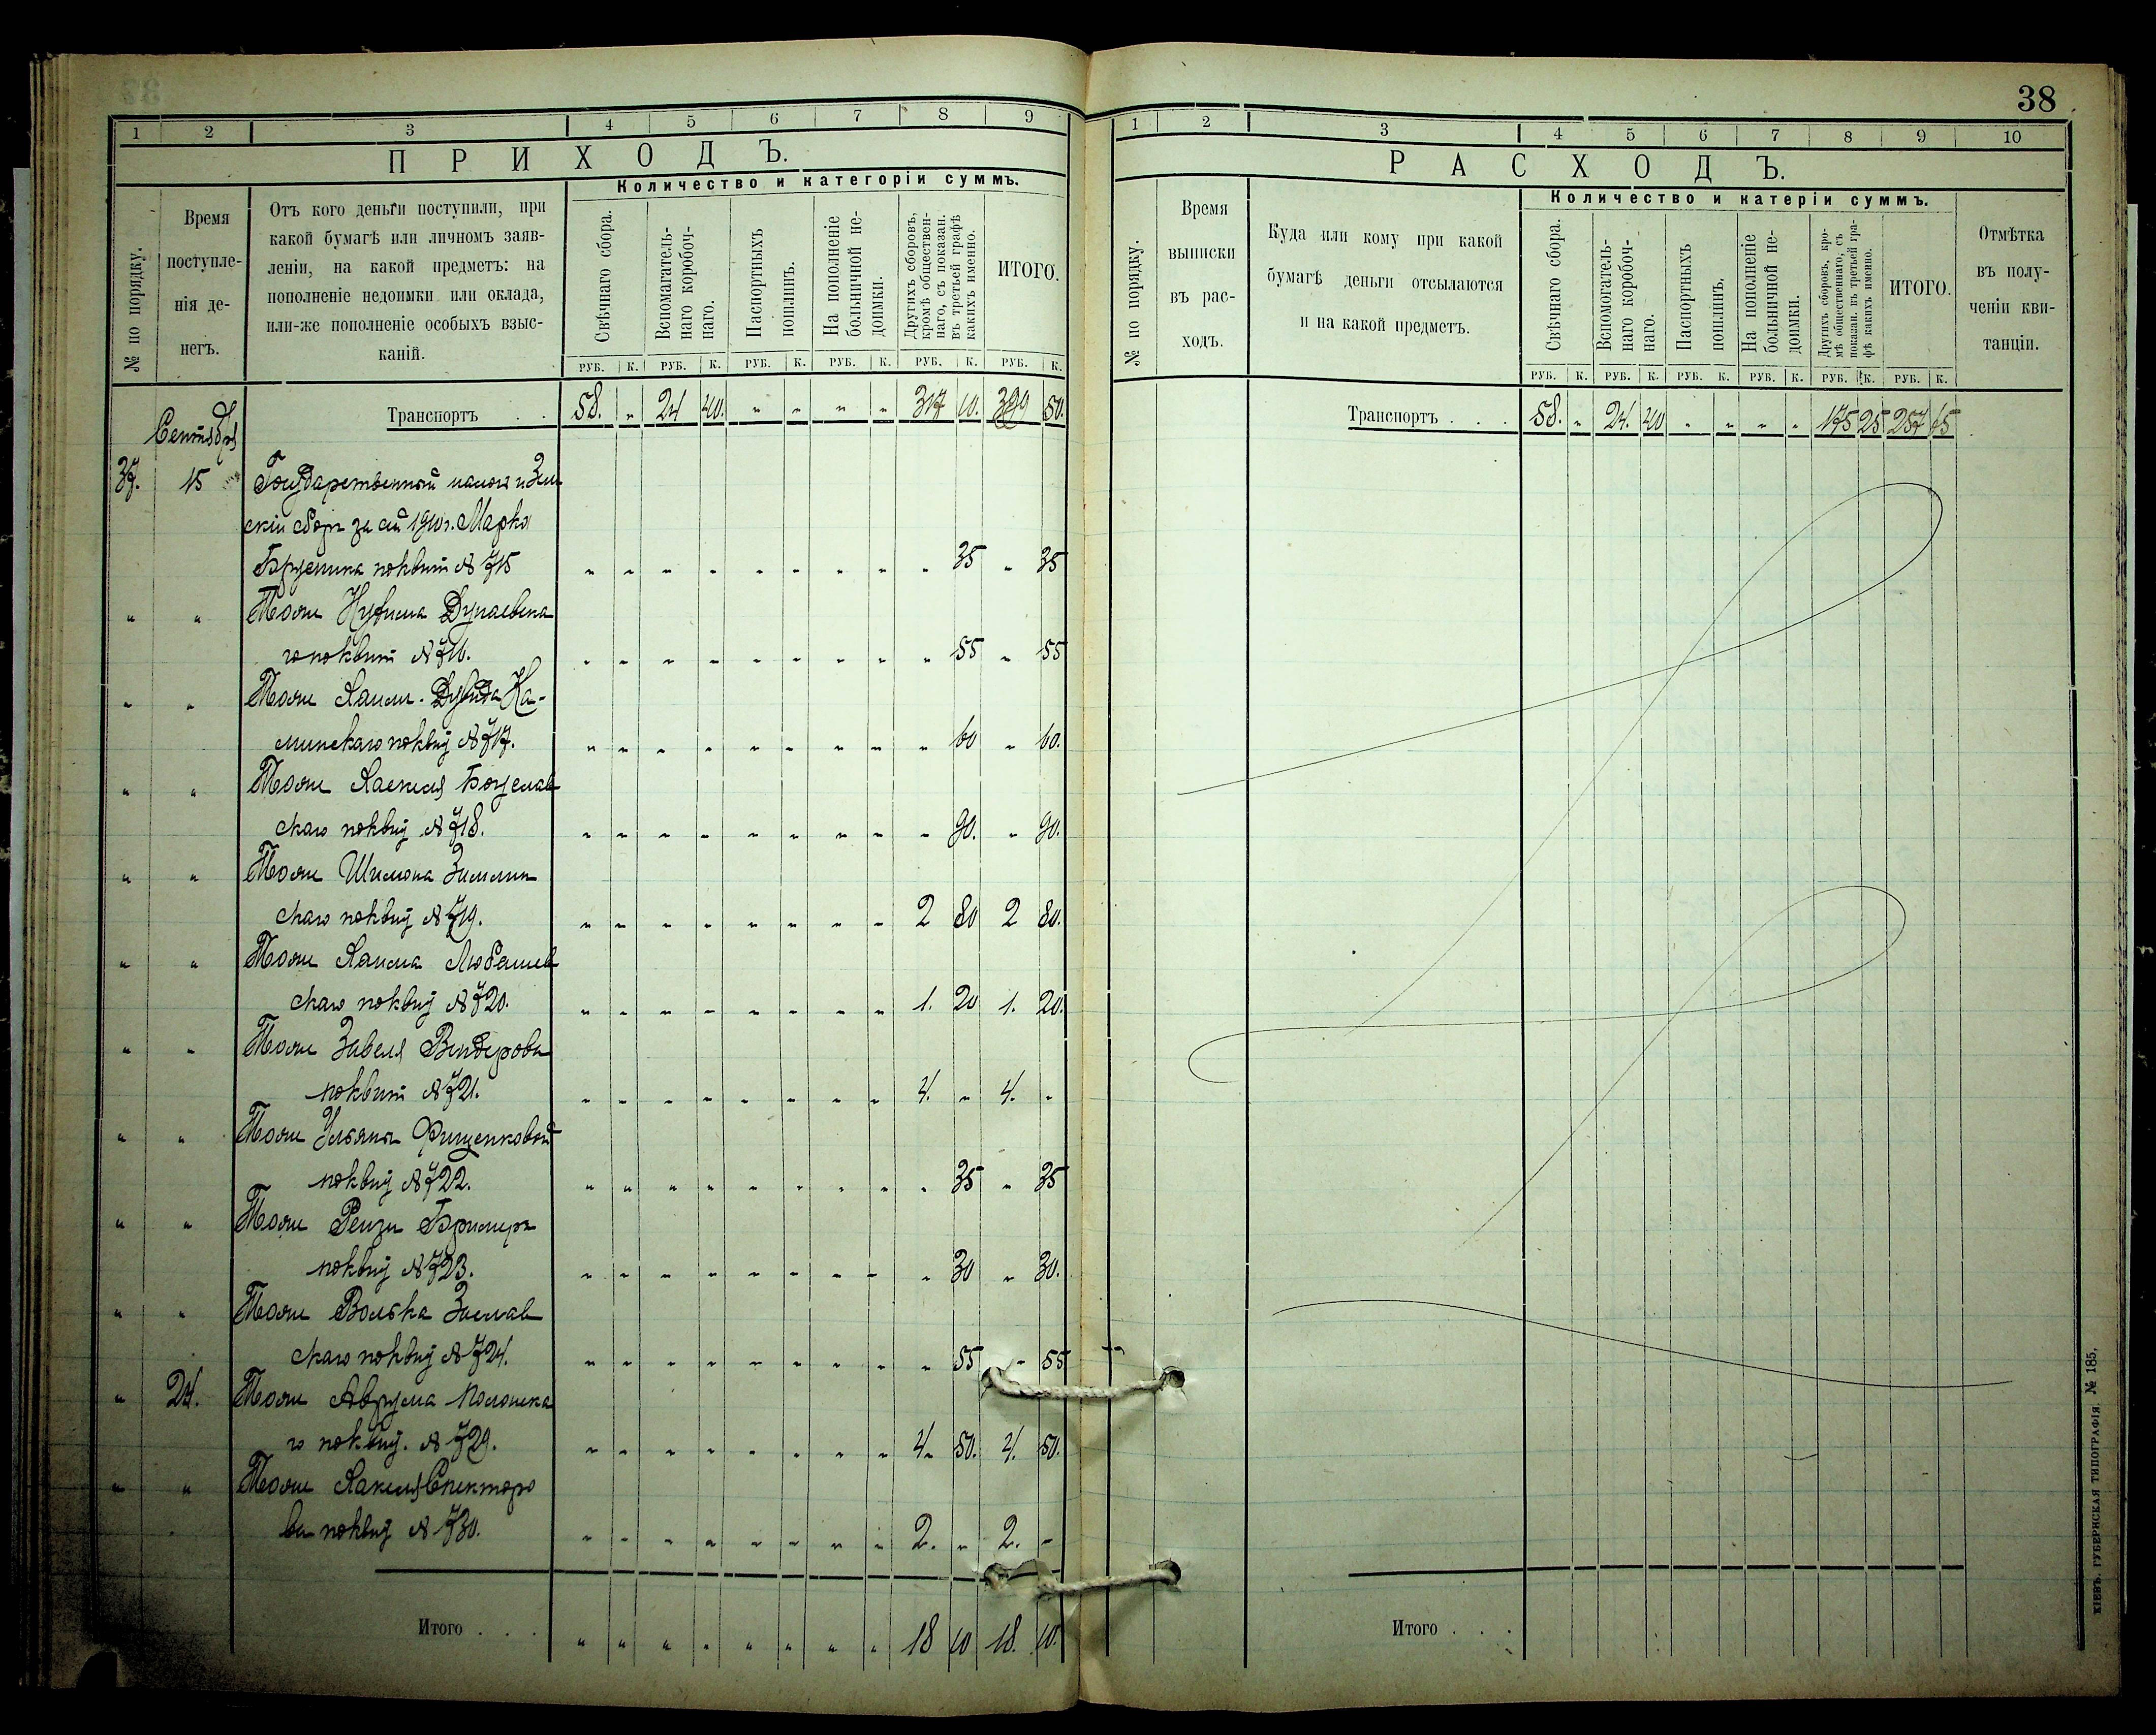 38
1 2 3 4 5 6 7 8 9
ПРИХОДЪ.
Количество и категоріи суммъ.
№ по порядку.
Время
поступле-
нія де-
негъ.
Отъ кого деньги поступили, при
какой бумагѣ или личномъ заяв-
леніи, на какой предметъ: на
пополненіе недоимки или оклада,
или-же пополненіе особыхъ взыс-
каній.
Свѣчнаго сбора.
Вспомагатель-
наго коробоч-
наго.
Паспортныхъ
пошлинъ.
На пополненіе
больничной не-
доимки.
Другихъ сборовъ,
кромѣ обществен-
наго, съ показан.
въ третьей графѣ
какихъ именно.
ИТОГО.
РУБ. К. РУБ. К. РУБ. К. РУБ. К. РУБ. К. РУБ. К.
Транспортъ . . 58. „ 24 40. „ „ „ „ 317 10. 399 50.
Сентября
37. 15 Государственный налогъ и Зем
скій сборъ за 1910 г. Марко
поквит № 715 „ „ „ „ „ „ „ „ „ 35 „ 35
„ „ Тоже Дунаевска
го поквит № 716. „ „ „ „ „ „ „ „ „ 55 „ 55
„ „ Тоже Хаим-Дувида Ка-
минскаго поквит № 717. „ „ „ „ „ „ „ „ „ 60 „ 60.
„ „ Тоже Хаскеля Богуслав
скаго поквит № 718. „ „ „ „ „ „ „ „ „ 90. „ 90.
„ „ Тоже Шимона
скаго поквит № 719. „ „ „ „ „ „ „ „ 2 80 2 80.
„ „ Тоже Хаима Любашев
скаго поквит № 720. „ „ „ „ „ „ „ „ 1. 20 1. 20.
„ „ Тоже Завеля Виндерова
поквит № 721. „ „ „ „ „ „ „ „ 4. „ 4. „
„ „ Тоже Ульяны Фищенковой
поквит № 722. „ „ „ „ „ „ „ „ „ 35 „ 35
„ „ Тоже Рейзи Бримеръ
поквит № 723. „ „ „ „ „ „ „ „ „ 30 „ 30.
„ „ Тоже Волька Заслав
скаго поквит № 724. „ „ „ „ „ „ „ „ „ 55 „ 55
„ 24. Тоже Аврума Полонска
го поквит. № 729. „ „ „ „ „ „ „ „ 4. 50. 4. 50.
„ „ Тоже Хакеля Спекторо
ва поквит № 730. „ „ „ „ „ „ „ „ 2. „ 2. „
Итого . . . „ „ „ „ „ „ „ „ 18 10 18. 10.
1 2 3 4 5 6 7 8 9 10
РАСХОДЪ.
Количество и катеріи суммъ.
№ по порядку.
Время
выписки
въ рас-
ходъ.
Куда или кому при какой
бумагѣ деньги отсылаются
и на какой предметъ.
Свѣчнаго сбора.
Вспомогатель-
наго коробоч-
наго.
Паспортныхъ
пошлинъ.
На пополненіе
больничной не-
доимки.
Другихъ сборовъ, кро-
мѣ общественнаго, съ
показан. въ третьей гра-
фѣ какихъ именно.
ИТОГО.
Отмѣтка
въ полу-
ченіи кви-
танціи.
РУБ. К. РУБ. К. РУБ. К. РУБ. К. РУБ. К. РУБ. К.
Транспортъ . . . 58. „ 24. 40 „ „ „ „ 175 25 257 65
Итого . . .
КІЕВЪ. ГУБЕРНСКАЯ ТИПОГРАФІЯ. № 185,